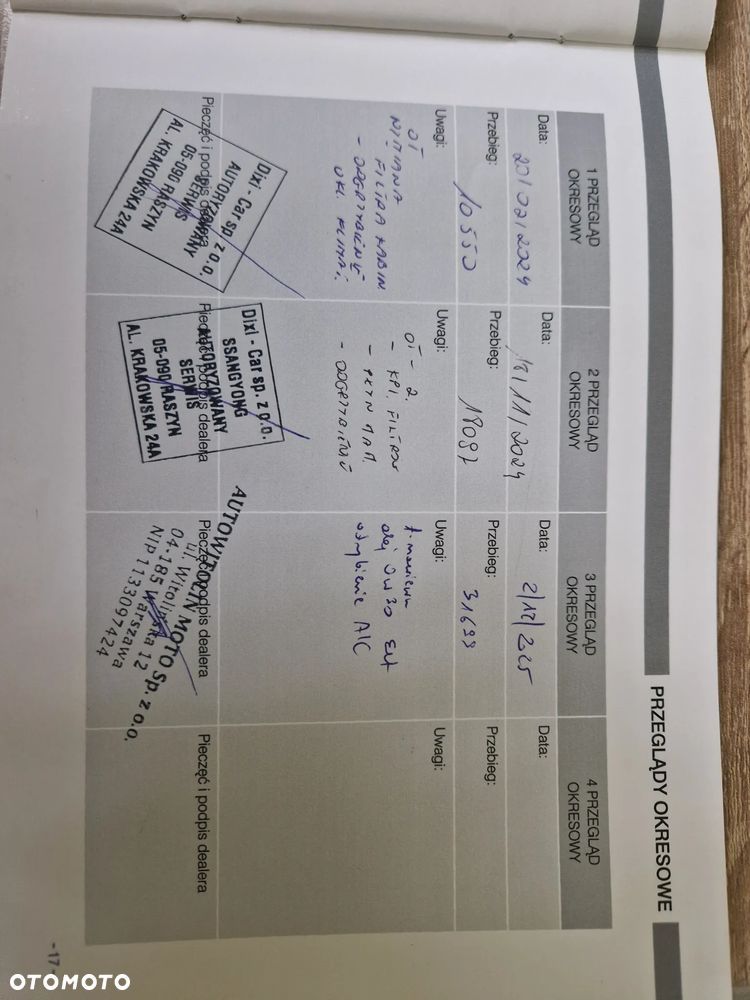 PRZEGLĄDY OKRESOWE
1 PRZEGLĄD
OKRESOWY
Data: 20/02/2024
Przebieg: 10550
Uwagi:
OT
WYMIANA
FILTRA KABIN
- ODGRZYBIENIE
UKL. KLIMAT.
Pieczęć i podpis dealera
Dixi - Car sp. z o.o.
AUTORYZOWANY
SERWIS
05-090 RASZYN
AL. KRAKOWSKA 24A
2 PRZEGLĄD
OKRESOWY
Data: 18/11/2024
Przebieg: 19097
Uwagi:
OT - 2.
- KPL. FILTRÓW
- PŁYN HAM.
- ODGRZYBIENIE
Pieczęć i podpis dealera
Dixi - Car sp. z o.o.
SSANGYONG
AUTORYZOWANY
SERWIS
05-090 RASZYN
AL. KRAKOWSKA 24A
3 PRZEGLĄD
OKRESOWY
Data: 2/12/2025
Przebieg: 31699
Uwagi:
olej 0W30
A/C
Pieczęć i podpis dealera
AUTOWITOLIN MOTO Sp. z o.o.
ul. Witolińska 12
04-185 Warszawa
NIP 1133097424
4 PRZEGLĄD
OKRESOWY
Data:
Przebieg:
Uwagi:
Pieczęć i podpis dealera
-17-
OTOMOTO